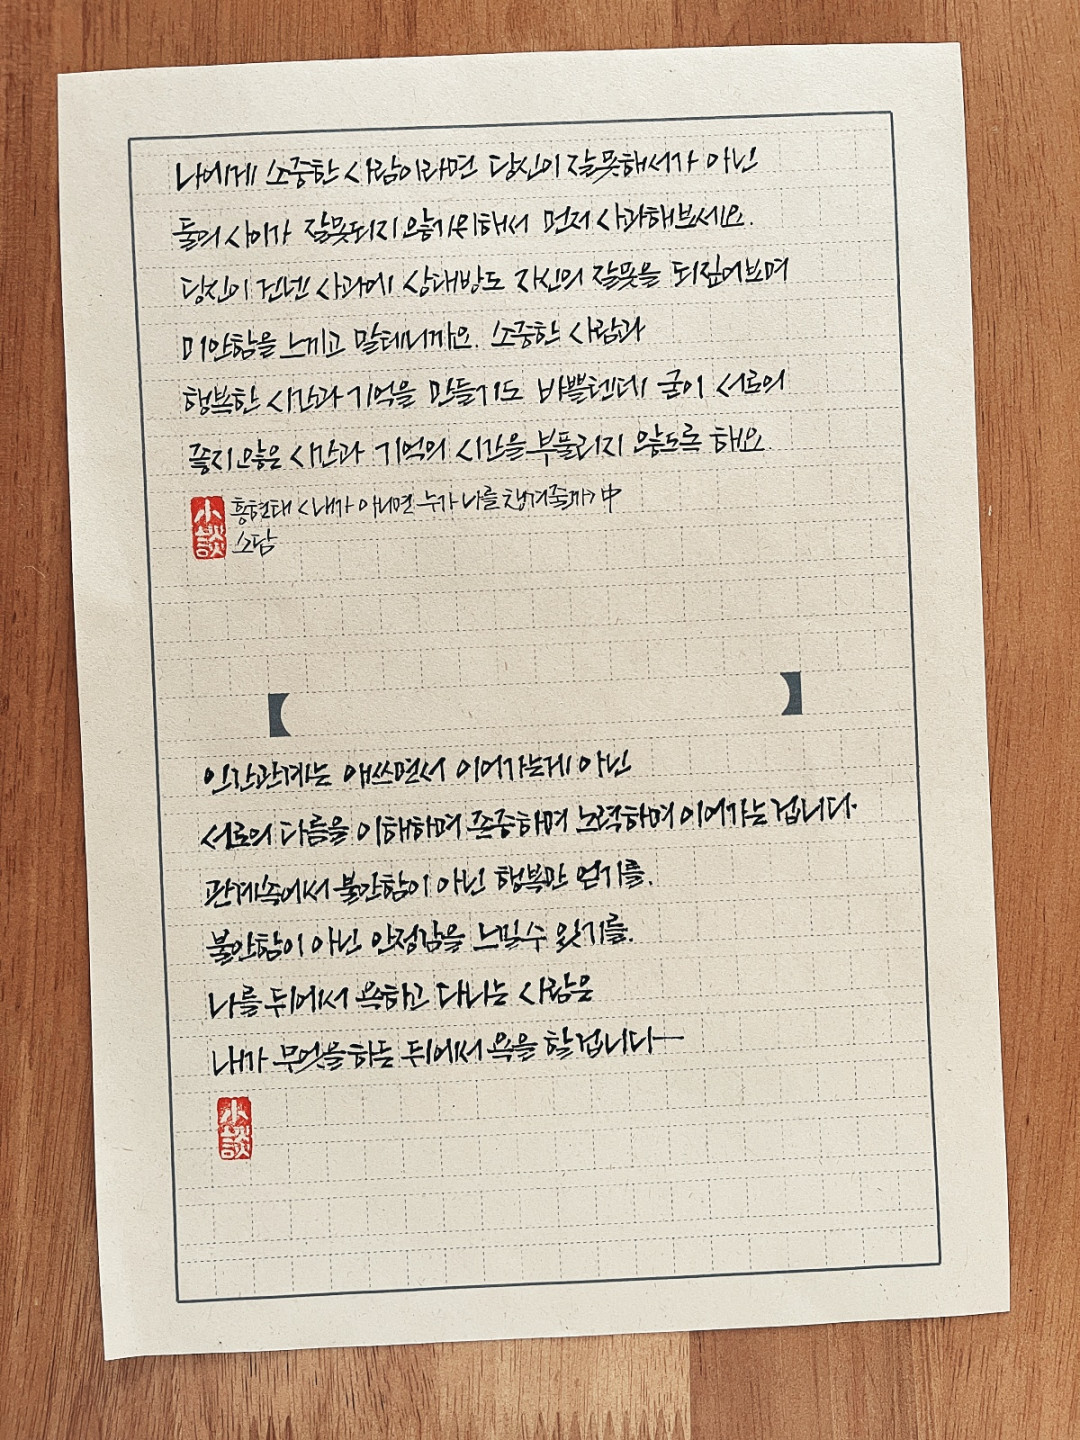 나에게 소중한 사람이라면 당신이 잘못해서가 아닌
둘의 사이가 잘못되지 않기위해서 먼저 사과해보세요.
당신이 건넨 사과에 상대방도 자신의 잘못을 되짚어보며
미안함을 느끼고 말테니까요. 소중한 사람과
행복한 시간과 기억을 만들기도 바쁠텐데 굳이 서로의
좋지않은 시간과 기억의 시간을 부풀리지 않도록 해요.
小談 흥현태 <내가 아니면 누가 나를 챙겨줄까> 中
소담
인간관계는 애쓰면서 이어가는게 아닌
서로의 다름을 이해하며 존중하며 노력하며 이어가는 겁니다.
관계속에서 불안함이 아닌 행복만 얻기를.
불안함이 아닌 안정감을 느낄수 있기를.
나를 뒤에서 욕하고 다니는 사람은
내가 무엇을 하든 뒤에서 욕을 할겁니다—
小談